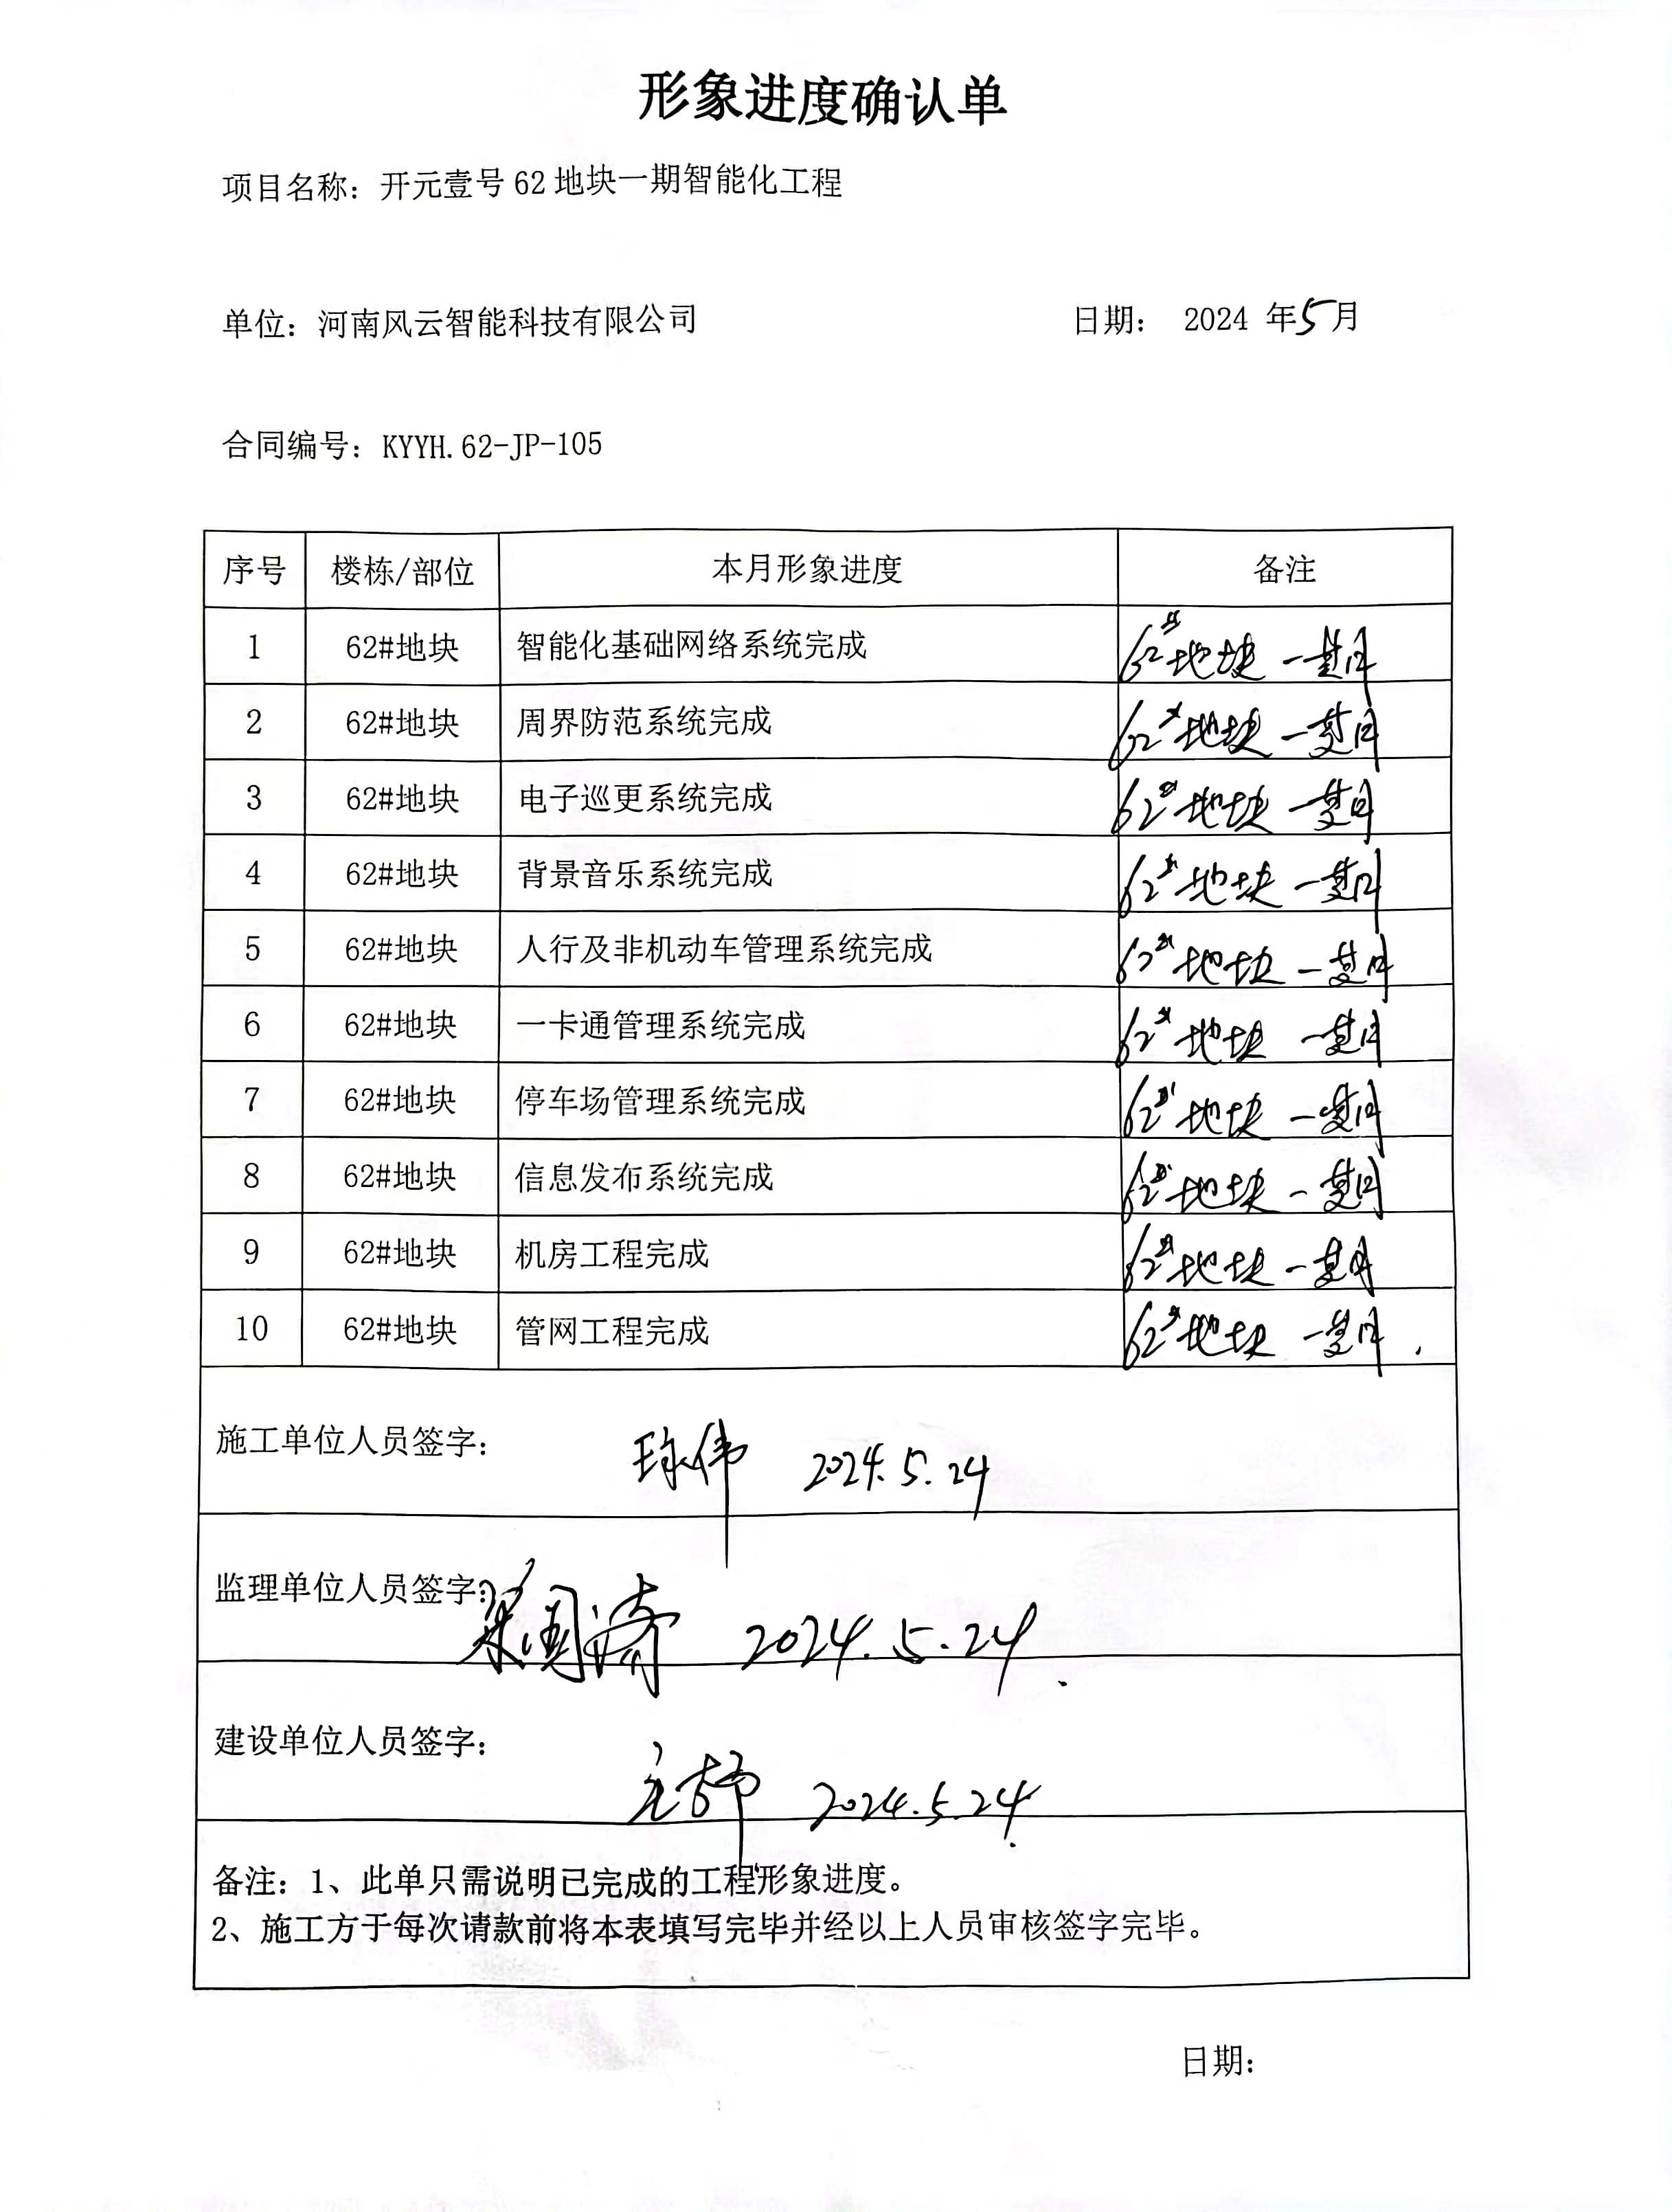 形象进度确认单
项目名称：开元壹号 62 地块一期智能化工程
单位：河南风云智能科技有限公司 日期： 2024 年5月
合同编号：KYYH.62-JP-105
序号 楼栋/部位 本月形象进度 备注
1 62#地块 智能化基础网络系统完成 62#地块 一期
2 62#地块 周界防范系统完成 62#地块 一期
3 62#地块 电子巡更系统完成 62#地块 一期
4 62#地块 背景音乐系统完成 62#地块 一期
5 62#地块 人行及非机动车管理系统完成 62#地块 一期
6 62#地块 一卡通管理系统完成 62#地块 一期
7 62#地块 停车场管理系统完成 62#地块 一期
8 62#地块 信息发布系统完成 62#地块 一期
9 62#地块 机房工程完成 62#地块 一期
10 62#地块 管网工程完成 62#地块 一期
施工单位人员签字： 2024.5.24
监理单位人员签字： 2024.5.24
建设单位人员签字： 2024.5.24
备注：1、此单只需说明已完成的工程形象进度。
2、施工方于每次请款前将本表填写完毕并经以上人员审核签字完毕。
日期：